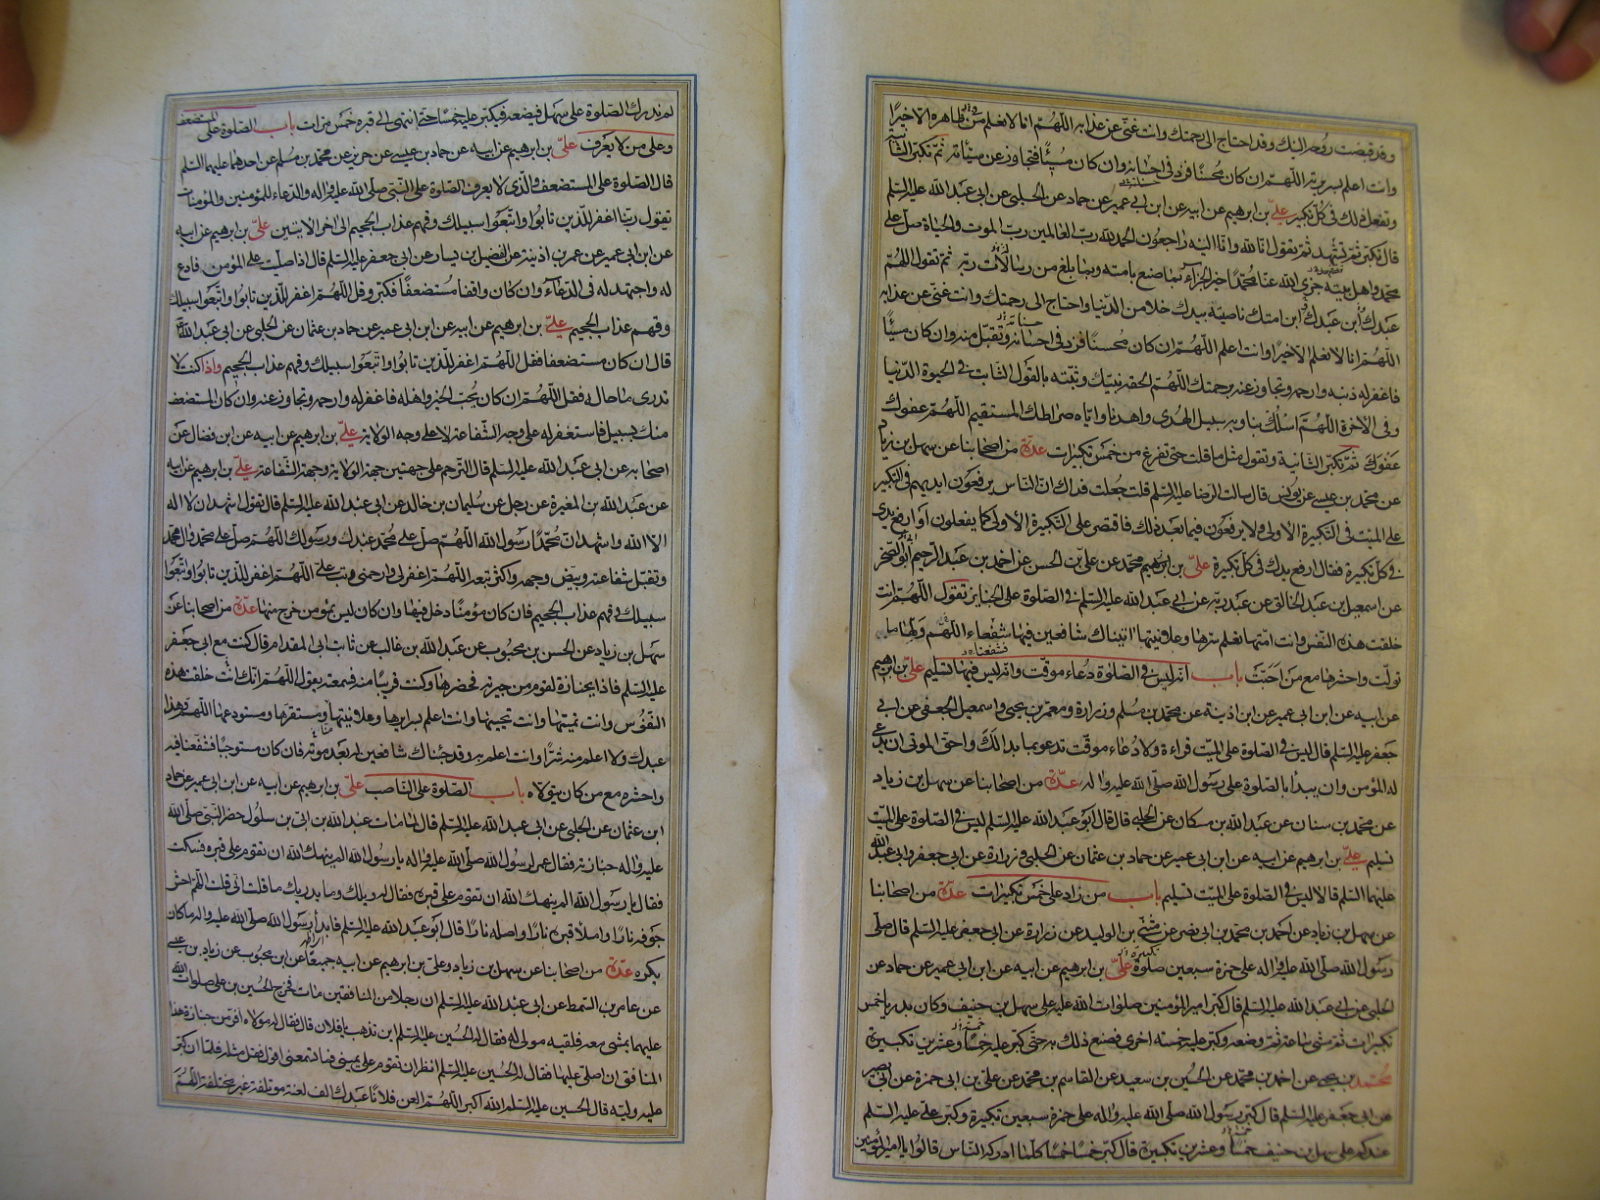 وقد قبضت روحه اليك وقد احتاج الى رحمتك وانت غنى عن عذابه اللهم انا لا نعلم من ظاهره الا خيرا
وانت اعلم بسريرته اللهم ان كان محسنا فزد فى احسانه وان كان مسيئا فتجاوز عن سيئاته ثم تكبر الثانية
وتفعل ذلك فى كل تكبير علىّ بن ابرهيم عن ابيه عن ابن ابى عمير عن حماد عن الحلبى عن ابى عبد الله عليه السلم
قال تكبر ثم تشهد ثم تقول انا لله وانا اليه راجعون الحمد لله رب العالمين رب الموت والحياة صل على
محمد واهل بيته جزى الله عنا محمدا خير الجزاء بما صنع بامته وبما بلغ من رسالات ربه ثم تقول اللهم
عبدك ابن عبدك ابن امتك ناصيته بيدك خلا من الدنيا واحتاج الى رحمتك وانت غنى عن عذابه
اللهم انا لا نعلم الا خيرا وانت اعلم اللهم ان كان محسنا فزد فى احسانه وتقبل منه وان كان مسيئا
فاغفر له ذنبه وارحمه وتجاوز عنه برحمتك اللهم الحقه بنبيك وثبته بالقول الثابت فى الحيوة الدنيا
وفى الآخرة اللهم اسلك بنا وبه سبيل الهدى واهدنا واياه صراطك المستقيم اللهم عفوك
عفوك ثم تكبر الثانية وتقول مثل ما قلت حتى تفرغ من خمس تكبيرات عدة من اصحابنا عن سهل بن زياد
عن محمد بن عيسى عن يونس قال سالت الرضا عليه السلم قلت جعلت فداك ان الناس يرفعون ايديهم فى التكبير
على الميت فى التكبيرة الاولى ولا يرفعون فيما بعد ذلك فاقتصر على التكبيرة الاولى كما يفعلون او ارفع يدى
فى كل تكبيرة فقال ارفع يدك فى كل تكبيرة علىّ بن ابرهيم محمد عن على بن الحسن عن احمد بن عبد الرحيم ابو الصخر
عن اسمعيل بن عبد الخالق عن عبد ربه عن ابى عبد الله عليه السلم فى الصلوة على الجنايز تقول اللهم انت
خلقت هذه النفس وانت امتها تعلم سرها وعلانيتها اتيناك شافعين فيها شفعاء اللهم ولها ما
تولت واحشرها مع من احبت باب انه ليس فى الصلوة دعاء موقت وانه ليس فيها تسليم على بن ابرهيم
عن ابيه عن ابن ابى عمير عن ابن اذينة عن محمد بن مسلم وزرارة ومعمر بن يحيى واسمعيل الجعفى عن ابى
جعفر عليه السلم قال ليس فى الصلوة على الميت قراءة ولا دعاء موقت تدعو بما بدا لك واحق الموتى ان يدعى
له المؤمن وان يبدأ بالصلوة على رسول الله صلى الله عليه واله عدة من اصحابنا عن سهل بن زياد
عن محمد بن سنان عن عبد الله بن مسكان عن الحلبى قال قال ابو عبد الله عليه السلم ليس فى الصلوة على الميت
تسليم علىّ بن ابرهيم عن ابيه عن ابن ابى عمير عن حماد بن عثمان عن الحلبى وزرارة عن ابى جعفر وابى عبد الله
عليهما السلم قالا ليس فى الصلوة على الميت تسليم باب من زاد على خمس تكبيرات عدة من اصحابنا
عن سهل بن زياد عن احمد بن محمد بن ابى نصر عن مثنى بن الوليد عن زرارة عن ابى جعفر عليه السلم قال صلى
رسول الله صلى الله عليه واله على حمزة سبعين صلوة علىّ بن ابرهيم عن ابيه عن ابن ابى عمير عن حماد عن
الحلبى عن ابى عبد الله عليه السلم قال كبر امير المؤمنين صلوات الله عليه على سهل بن حنيف وكان بدريا خمس
تكبيرات ثم مشى ساعة ثم وضعه وكبر عليه خمسة اخرى فصنع ذلك به حتى كبر عليه خمسا وعشرين تكبيرة
محمد بن يحيى عن احمد بن محمد عن الحسين بن سعيد عن القاسم بن محمد عن على بن ابى حمزة عن ابى بصير
عن ابى جعفر عليه السلم قال كبر رسول الله صلى الله عليه واله على حمزة سبعين تكبيرة وكبر على عليه السلم
عندكم على سهل بن حنيف خمسا وعشرين تكبيرة قال كبر خمسا خمسا كلما ادركه الناس قالوا يا امير المؤمنين
لم ندرك الصلوة على سهل فيضعه فيكبر عليه خمسا حتى انتهى الى قبره خمس مرات باب الصلوة على المستضعف
وعلى من لا يعرف علىّ بن ابرهيم عن ابيه عن حماد بن عيسى عن حريز عن محمد بن مسلم عن احدهما عليهما السلم
قال الصلوة على المستضعف والذى لا يعرف الصلوة على النبى صلى الله عليه واله والدعاء للمؤمنين والمؤمنات
تقول ربنا اغفر للذين تابوا واتبعوا سبيلك وقهم عذاب الجحيم الى اخر الايتين علىّ بن ابرهيم عن ابيه
عن ابن ابى عمير عن عمر بن اذينة عن الفضيل بن يسار عن ابى جعفر عليه السلم قال اذا صليت على المؤمن فادع
له واجتهد له فى الدعاء وان كان واقفا مستضعفا فكبر وقل اللهم اغفر للذين تابوا واتبعوا سبيلك
وقهم عذاب الجحيم علىّ بن ابرهيم عن ابيه عن ابن ابى عمير عن حماد بن عثمان عن الحلبى عن ابى عبد الله
قال ان كان مستضعفا فقل اللهم اغفر للذين تابوا واتبعوا سبيلك وقهم عذاب الجحيم واذا كنت لا
تدرى ما حاله فقل اللهم ان كان يحب الخير واهله فاغفر له وارحمه وتجاوز عنه وان كان المستضعف
منك بسبيل فاستغفر له على وجه الشفاعة لا على وجه الولاية علىّ بن ابرهيم عن ابيه عن ابن فضال عن
اصحابه عن ابى عبد الله عليه السلم قال الترحم على جهتين جهة الولاية وجهة الشفاعة علىّ بن ابرهيم عن ابيه
عن عبد الله بن المغيرة عن رجل عن سليمان بن خالد عن ابى عبد الله عليه السلم قال تقول اشهد ان لا اله
الا الله واشهد ان محمدا رسول الله اللهم صل على محمد عبدك ورسولك اللهم صل على محمد وال محمد
وتقبل شفاعته وبيض وجهه واكثر تبعه اللهم اغفر لى وارحمنى وتب على اللهم اغفر للذين تابوا واتبعوا
سبيلك وقهم عذاب الجحيم فان كان مؤمنا دخل فيها وان كان ليس بمؤمن خرج منها عدة من اصحابنا عن
سهل بن زياد عن الحسن بن محبوب عن عبد الله بن غالب عن ثابت ابى المقدام قال كنت مع ابى جعفر
عليه السلم فاذا بجنازة لقوم من جيرته فحضرها وكنت قريبا منه فسمعته يقول اللهم انك انت خلقت هذه
النفوس وانت تميتها وانت تحييها وانت اعلم بسرايرها وعلانيتها ومستقرها ومستودعها اللهم وهذا
عبدك ولا اعلم منه شرا وانت اعلم به وقد جئناك شافعين له بعد موته فان كان مستوجبا فشفعنا فيه
واحشره مع من كان يتولاه باب الصلوة على الناصب علىّ بن ابرهيم عن ابيه عن ابن ابى عمير عن حماد
ابن عثمان عن الحلبى عن ابى عبد الله عليه السلم قال لما مات عبد الله بن ابى بن سلول حضر النبى صلى الله
عليه واله جنازته فقال عمر لرسول الله صلى الله عليه واله يا رسول الله الم ينهك الله ان تقوم على قبره فسكت
فقال يا رسول الله الم ينهك الله ان تقوم على قبره فقال له ويلك وما يدريك ما قلت انى قلت اللهم احش
جوفه نارا واملأ قبره نارا واصله نارا قال ابو عبد الله عليه السلم فابدأ رسول الله صلى الله عليه واله ما كان
يكره عدة من اصحابنا عن سهل بن زياد وعلى بن ابرهيم عن ابيه جميعا عن ابن محبوب عن زياد بن عيسى
عن عامر بن السمط عن ابى عبد الله عليه السلم ان رجلا من المنافقين مات فخرج الحسين بن على صلوات الله
عليهما يمشى معه فلقيه مولى له فقال له الحسين عليه السلم اين تذهب يا فلان قال فقال له مولاه افر من جنازة هذا
المنافق ان اصلى عليها فقال له الحسين عليه السلم انظر ان تقوم على يمينى فما تسمعنى اقول فقل مثله فلما ان كبر
عليه وليه قال الحسين عليه السلم الله اكبر اللهم العن فلانا عبدك الف لعنة موتلفة غير مختلفة اللهم